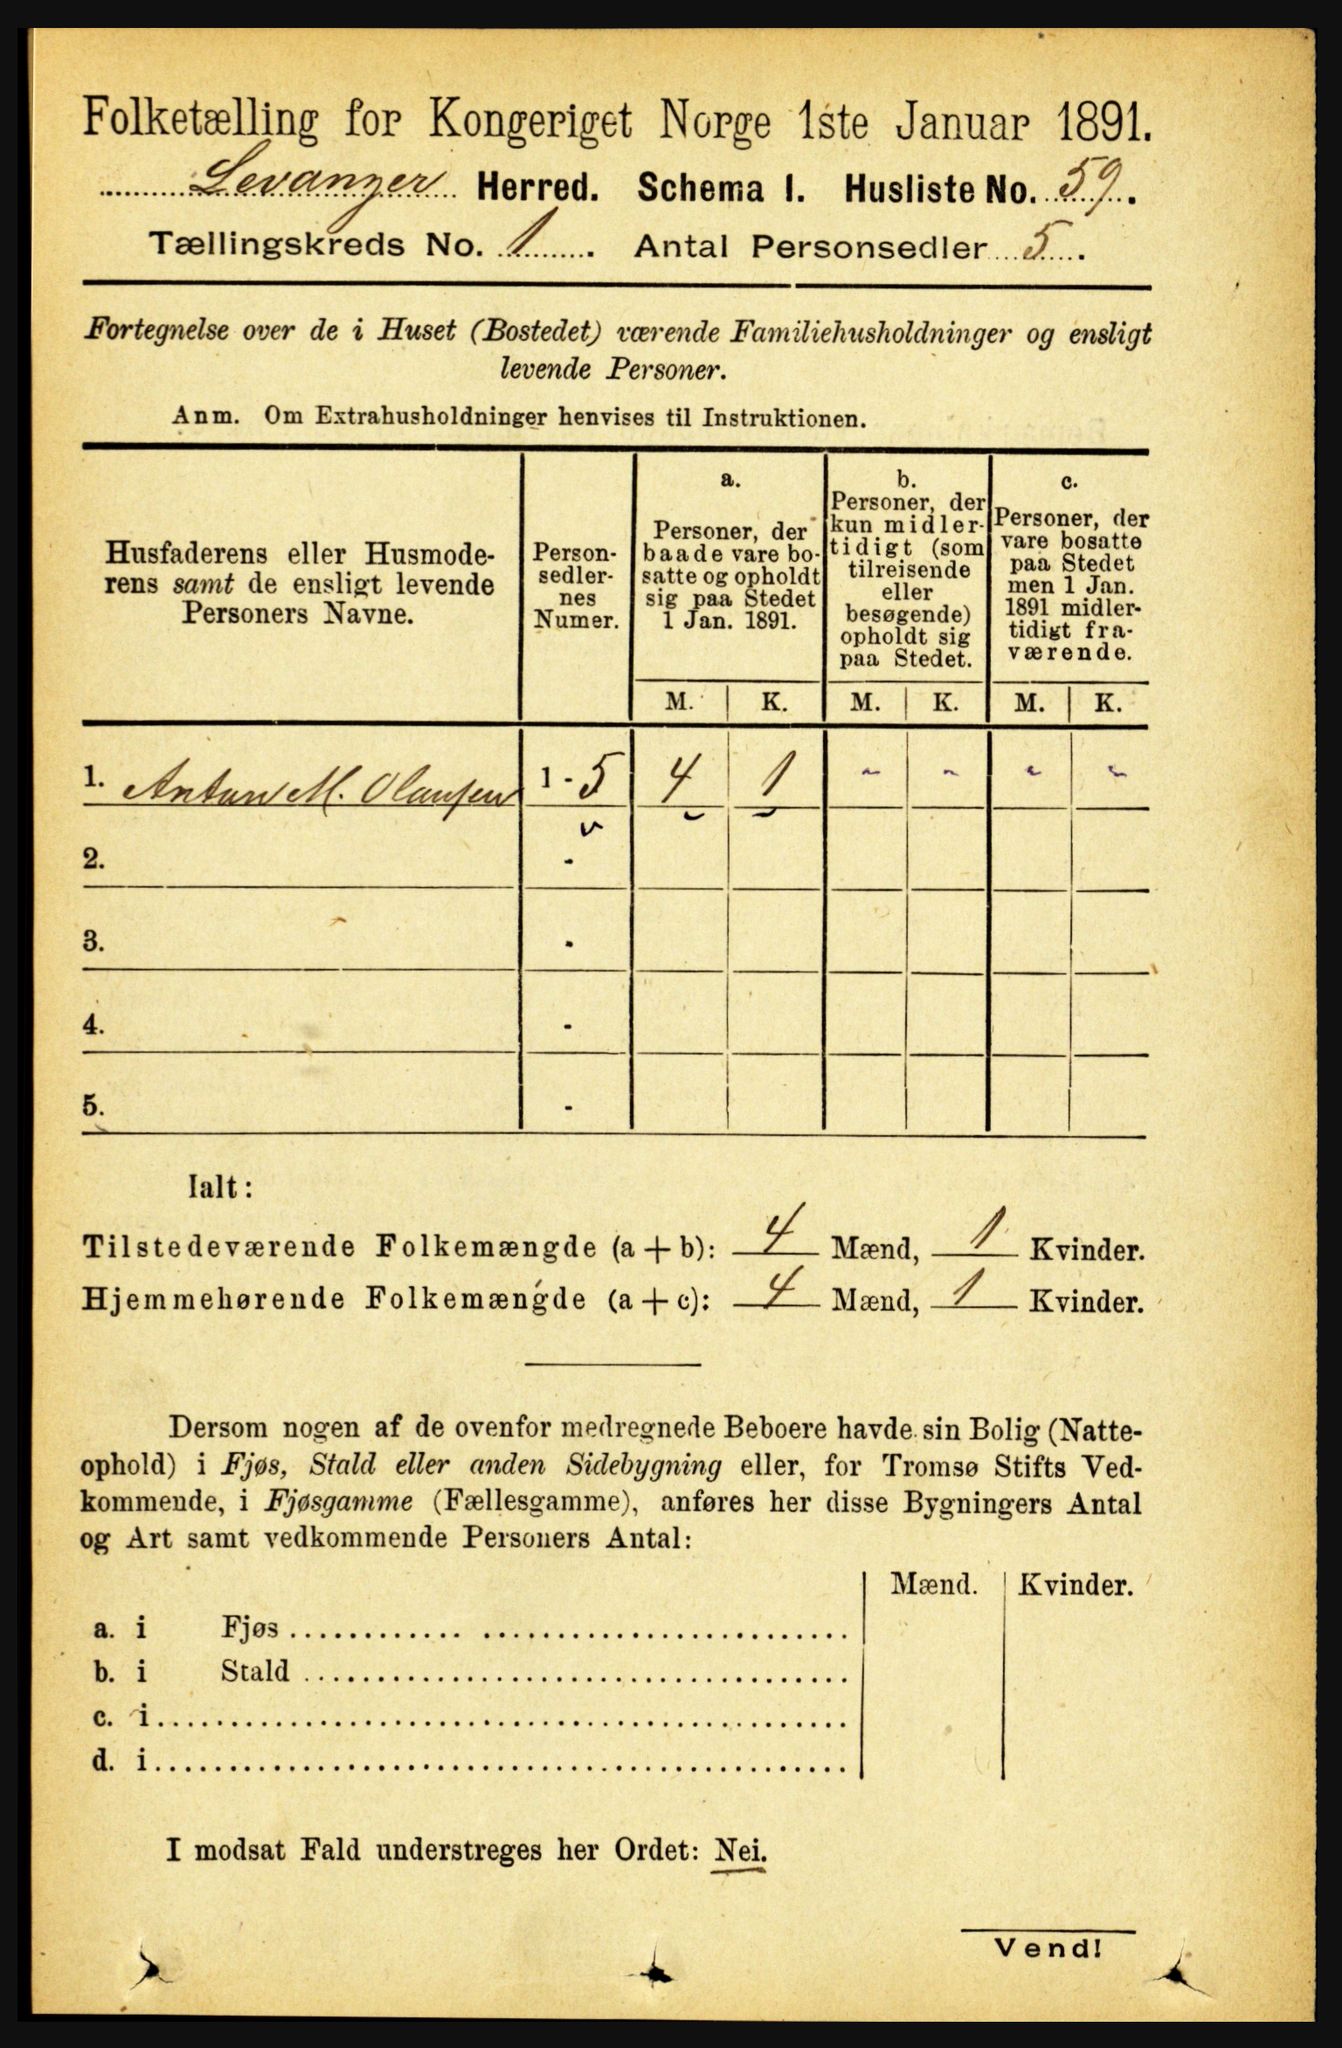 Folketælling for Kongeriget Norge 1ste Januar 1891.
Levanger Herred. Schema I. Husliste No. 59.
Tællingskreds No. 1. Antal Personsedler 5.
Fortegnelse over de i Huset (Bostedet) værende Familiehusholdninger og ensligt
levende Personer.
Anm. Om Extrahusholdninger henvises til Instruktionen.
Husfaderens eller Husmode-
rens samt de ensligt levende
Personers Navne.
Person-
sedler-
nes
Numer.
a.
Personer, der
baade vare bo-
satte og opholdt
sig paa Stedet
1 Jan. 1891.
b.
Personer, der
kun midler-
tidigt (som
tilreisende
eller
besøgende)
opholdt sig
paa Stedet.
c.
Personer, der
vare bosatte
paa Stedet
men 1 Jan.
1891 midler-
tidigt fra-
værende.
M. K. M. K. M. K.
1. Anton M. Olausen 1 - 5 4 1 - - - -
2. -
3. -
4. -
5. -
Ialt:
Tilstedeværende Folkemængde (a + b): 4 Mænd, 1 Kvinder.
Hjemmehørende Folkemængde (a + c): 4 Mænd, 1 Kvinder.
Dersom nogen af de ovenfor medregnede Beboere havde sin Bolig (Natte-
ophold) i Fjøs, Stald eller anden Sidebygning eller, for Tromsø Stifts Ved-
kommende, i Fjøsgamme (Fællesgamme), anføres her disse Bygningers Antal
og Art samt vedkommende Personers Antal:
Mænd. Kvinder.
a. i Fjøs
b. i Stald
c. i
d. i
I modsat Fald understreges her Ordet: Nei.
Vend!